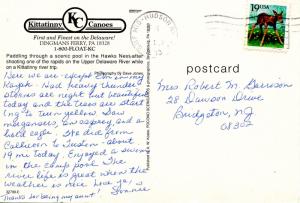 Kittatinny KC Canoes
First and Finest on the Delaware!
DINGMANS FERRY, PA 18328
1-800-FLOAT-KC
Paddling through a scenic pool in the Hawks Nest after shooting one of the rapids on the Upper Delaware River while on a Kittatinny river trip.
Photography by Dave Jones
MID-HUDSON
19USA
postcard
Here we are enjoying
Had heavy thunder
storms one night but beautiful
today and the trees are start-
ing to turn yellow. Saw
mergansers, an osprey and a
bald eagle. We did from
Callicoon to Tusten - about
19 mi today. Enjoyed a swim
in the camp pool. The
river life is great when the
weather is nice. Love ya,
Thanks for being my aunt! Bonnie
Mrs Robert M. Garrison
28 Dawson Drive
Bridgeton, NJ
08302